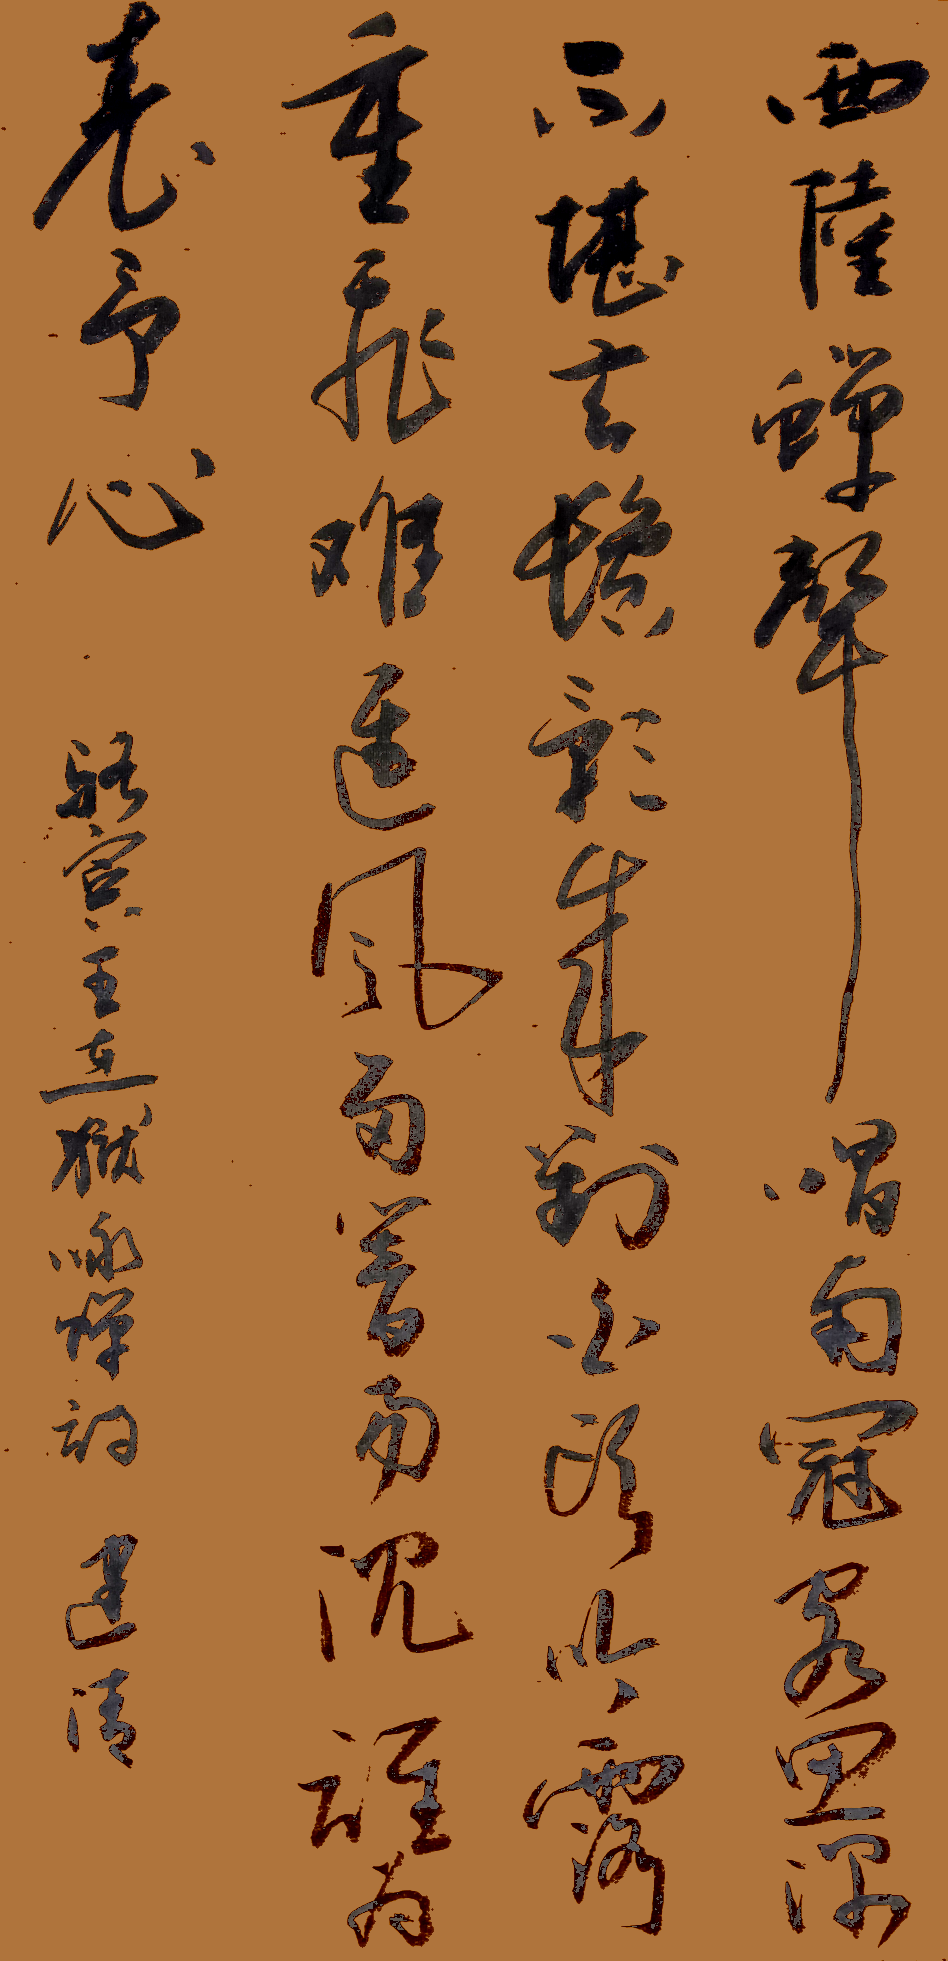 西陸蟬聲唱南冠客思深
不堪玄鬢影來對白頭吟露
重飛难進風多響易沉誰為
表予心 駱賓王在獄詠蟬詩 建清